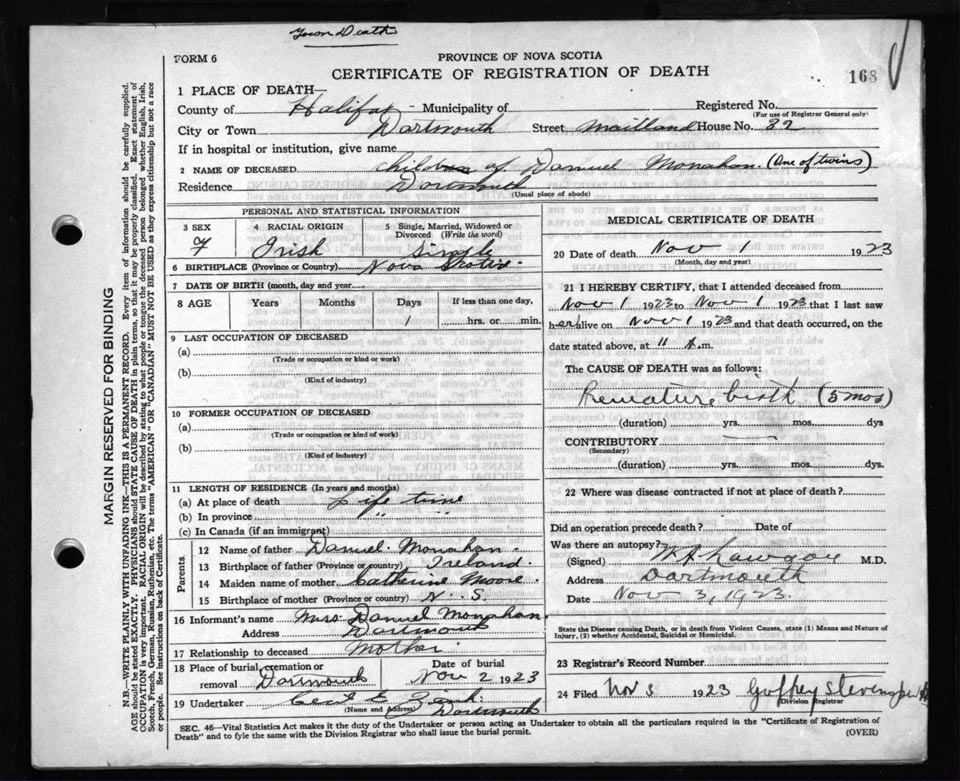 Town Death
FORM 6
PROVINCE OF NOVA SCOTIA
CERTIFICATE OF REGISTRATION OF DEATH
168
1 PLACE OF DEATH—
County of Halifax Municipality of Registered No.
(For use of Registrar General only)
City or Town Dartmouth Street Maitland House No. 32
If in hospital or institution, give name
2 NAME OF DECEASED children of Daniel Monahan (One of twins)
Residence Dartmouth
(Usual place of abode)
PERSONAL AND STATISTICAL INFORMATION
3 SEX 4 RACIAL ORIGIN 5 Single, Married, Widowed or Divorced (Write the word)
F Irish Single
6 BIRTHPLACE (Province or Country) Nova Scotia
7 DATE OF BIRTH (month, day and year)
8 AGE Years Months Days If less than one day,
1 hrs. or min.
9 LAST OCCUPATION OF DECEASED
(a)
(Trade or occupation or kind or work)
(b)
(Kind of industry)
10 FORMER OCCUPATION OF DECEASED
(a)
(Trade or occupation or kind of work)
(b)
(Kind of industry)
11 LENGTH OF RESIDENCE (In years and months)
(a) At place of death Life time
(b) In province " "
(c) In Canada (if an immigrant)
Parents
12 Name of father Daniel Monahan
13 Birthplace of father (Province or country) Ireland
14 Maiden name of mother Catherine Moore
15 Birthplace of mother (Province or country) N. S.
16 Informant's name Mrs. Daniel Monahan
Address Dartmouth
17 Relationship to deceased Mother
18 Place of burial, cremation or removal Dartmouth
Date of burial Nov 2 1923
19 Undertaker Geo E Zink
(Name and Address) Dartmouth
MEDICAL CERTIFICATE OF DEATH
20 Date of death Nov 1 1923
(Month, day and year)
21 I HEREBY CERTIFY, that I attended deceased from
Nov 1 1923 to Nov 1 1923 that I last saw
her alive on Nov 1 1923 and that death occurred, on the
date stated above, at 11 A.m.
The CAUSE OF DEATH was as follows:
Premature birth (5 mos)
(duration) yrs. mos. dys
CONTRIBUTORY
(Secondary)
(duration) yrs. mos. dys.
22 Where was disease contracted if not at place of death?
Did an operation precede death? Date of
Was there an autopsy?
(Signed) M.D.
Address Dartmouth
Date Nov 3, 1923.
State the Disease causing Death, or in death from Violent Causes, state (1) Means and Nature of
Injury, (2) whether Accidental, Suicidal or Homicidal.
23 Registrar's Record Number
24 Filed Nov 3 1923
Division Registrar
SEC. 46—Vital Statistics Act makes it the duty of the Undertaker or person acting as Undertaker to obtain all the particulars required in the "Certificate of Registration of
Death" and to fyle the same with the Division Registrar who shall issue the burial permit.
(OVER)
MARGIN RESERVED FOR BINDING
N.B.—WRITE PLAINLY WITH UNFADING INK—THIS IS A PERMANENT RECORD. Every item of information should be carefully supplied.
AGE should be stated EXACTLY. PHYSICIANS should STATE CAUSE OF DEATH in plain terms, so that it may be properly classified. Exact statement of
OCCUPATION is very important. RACIAL ORIGIN will be described by stating to what people or tongue the deceased person belonged whether English, Irish,
Scotch, French, German, Russian, Ruthenian, etc. The terms "AMERICAN" OR "CANADIAN" MUST NOT BE USED as they express citizenship but not a race
or people. See instructions on back of Certificate.